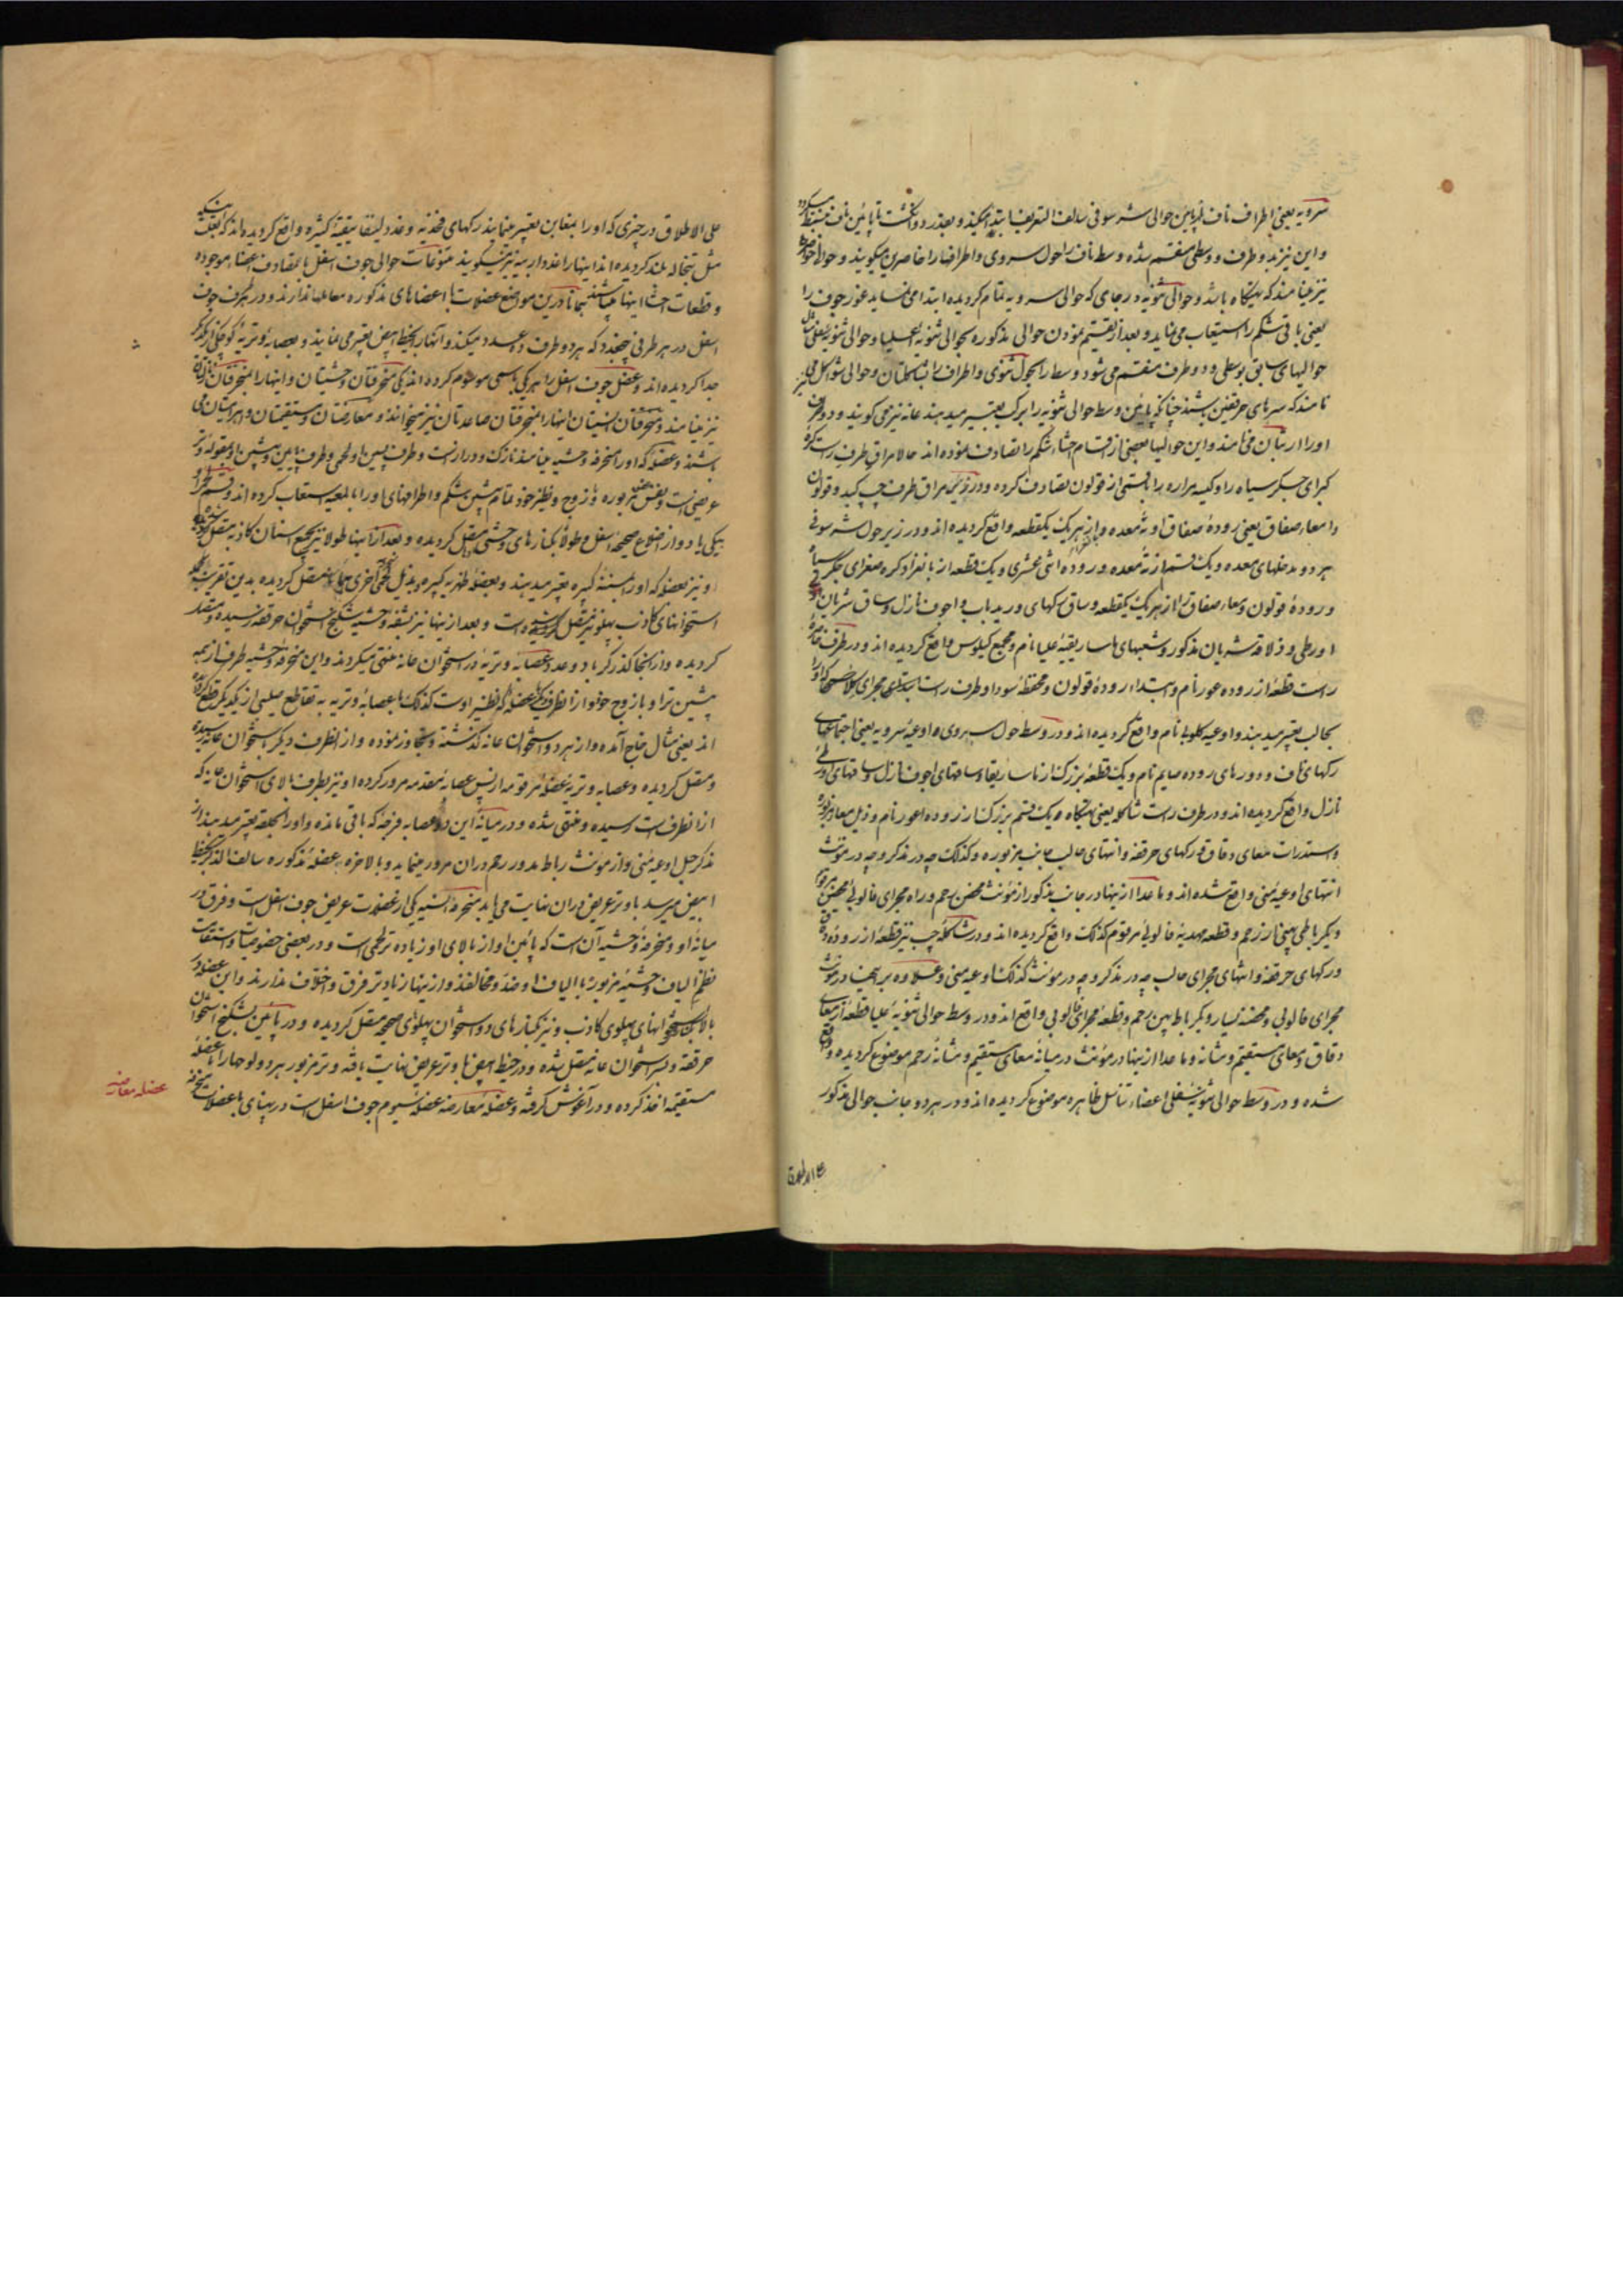 سرویه یعنی اطراف ناف از پایین حوالی شرسوفی سالف التعریف ابتدا میکند و بقدر دو انگشت تا پائین ناف
و این نیز بدو طرف و وسطی منقسم شده وسط ناف را حول سروی و اطرافها را خاصرین میگویند و حوالی
نیز مینامند که تهیگاه باشد و حوالی ثنویه در جای که حوالی سرویه تمام کردیده ابتدا می نماید غور جوف را
یعنی باقی شکم را استیعاب می نماید و بعد از تقسیم نمودن حوالی مذکوره بحوالی ثنویه علیا و حوالی ثنویه سفلی
حوالیهای سابق بوسطی و دو طرف منقسم می شود وسط را حول ثنوی و اطراف را
نامند که سرهای حرقفین باشند چنانکه پائین وسط حوالی ثنویه را ببرک تعبیر میدهند عانه نیز می گویند و دو طرف
اورا اربتان می نامند و این حوالیها بعضی از اقسام احشاء شکم را تصادف نموده اند حالا مراق طرف راست
کبرای جگر سیاه را و کیسه مراره را با قسمی از قولون تصادف کرده و در زیر مراق طرف چپ کبد و قولون
و امعاء صفاق یعنی روده صفاق او ته معده و از هر یک یکقطعه واقع کردیده اند و در زیر حول شرسوفی
هر دو مدخلهای معده و یک قسم از ته معده و روده اثنی عشری و یک قطعه از بانقراد کره صغرای جگر سیاه
و روده قولون و معاء صفاق از هر یک یکقطعه و ساق رکهای ورید باب و اجوف نازل و ساق شریان
اورطی و ذلاقه شریان مذکور و شعبهای ماساریقیه علیا نام و مجمع کیلوس واقع کردیده اند و در طرف
راست قطعه از روده اعور نام و ابتداء روده قولون و محفظه سودا و طرف راست
بحالب تعبیر میدهند و اوعیه کلوبی نام واقع کردیده اند و در وسط حول سروی ه اوعیه سرویه یعنی اجتماعهای
رکهای ناف و دورهای روده صایم نام و یک قطعه بزرک از ماساریقا و ساقهای اجوف نازل و ساقهای اورطی
نازل واقع کردیده اند و در طرف راست شاکله یعنی تهیگاه ه یک قسم بزرک از روده اعور نام و ذیل معاء مزبوره
و استدرات معای دقاق و رکهای حرقفه و انتهای حالب جانب مزبوره و کذلک چه در مذکر و چه در مؤنث
انتهای اوعیه منی واقع شده اند و ما عدا از اینها در جانب مذکور از مؤنث محض رحم و راه مجرای فالوبی
دیکر باطی پهنا از رحم و قطعه مهدیه فالوبی مرقوم کذلک واقع کردیده اند و در شاکله چپ نیز قطعه از روده
و رکهای حرقفه و انتهای مجرای حالب چه در مذکر و چه در مؤنث کذلک اوعیه منی و علاوه بر اینها در مؤنث
مجرای فالوبی و محضه یسار و دیکر باط پهن رحم و قطعه مجرای فالوبی واقع اند و در وسط حوالی ثنویه علیا قطعه از معای
دقاق و معای مستقیم و مثانه و ما عدا از اینها در مؤنث در میانه معای مستقیم و مثانه رحم موضوع کردیده
شده و در وسط حوالی ثنویه سفلی اعضاء تناسل ظاهره موضوع کردیده اند و در هر دو جانب حوالی مذکور
علی الاطلاق
علی الاطلاق در چیزی که او را بمغابن تعبیر مینمایند رکهای فخذیه و غدد لینفاتیقیه کثیره واقع کردیده اند که بغلت
مثل نخاله بلند کردیده اند اینها را غدد اربیه نیز میکویند متنوعات حوالی جوف اسفل با تصادف اعضاء موجوده
و قطعات احشا اینها در این موضع عضلات با اعضاهای مذکوره معامله ندارند و در هر طرف جوف
اسفل در هر طرفی پنجعدد که هر دو طرف ده عدد میکند و آنها را بخیط ابیض تعبیر می نمایند و بعصابه وتریه
جدا کردیده اند و عضل جوف اسفل را هر یکی باسمی موسوم کرده اند یکی منحرفتان وحشیتان و اینها را منحرفتان نازلتان
نیز مینامند و منحرفتان انسیتان اینها را منحرفتان صاعدتان نیز میخوانند و معارضتان و مستقیمتان و هرمیتان می
باشند و عضله که او را منحرفه وحشیه مینامند نازک و دراز است و طرف پسین او لحمی و طرف پایین و پیشین او
عریض است و نفس مزبوره با زوج و نظیر خود تمام پیش شکم و اطرافهای او را بالمعیه استیعاب کرده اند
یکی یا دو از اضلاع صحیحه اسفل و طولا بکنارهای وحشی متصل کردیده و بعد از اینها طولا نیز بجمیع اسنان کاذبه متصل کردیده
و نیز بعضله که او را مسننه کبیره تعبیر میدهند و بعضله ظهریه کبیره و بذیل لحمی اخری متصل کردیده بدین تقریب
استخوانهای کاذب پهلو نیز متصل کردیده است و بعد از اینها نیز بشفه وحشیه شکنج استخوان حرقفه رسیده و متصل
کردیده و از آنجا گذر کرباد و عدد عصابه وتریه در استخوان عانه منتهی میکردند و این منحرفه وحشیه طرف ازیمه
پیشین تر او با زوج خود از انطرف یکی عضله که نظیر اوست کذلک با عصابه وتریه به تقاطع صلیبی از یکدیکر قطع کردیده
اند یعنی مثال خاج آمده و از هر دو استخوان عانه گذشته و تجاوز نموده و از انطرف دیکر استخوان عانه رسیده
و متصل کردیده و عصابه وتریه عضله مرقومه از پس عصابه مقدمه مرور کرده او نیز بطرف بالای استخوان عانه که
از انطرفست رسیده و منتهی شده و در میانه این دو عصابه فرجه که باقی مانده و او را بحلقه تعبیر میدهند از
مذکر حبل اوعیه منی و از مؤنث رباط مدور رحم در ان مرور مینماید و بالاخره عضله مذکوره سالف الذکر بخیط
ابیض میرسد با وتر عریض در ان نهایت می یابد منحرفه انسیه یکی از عضلات عریض جوف اسفل است و فرق در
میانه او و منحرفه وحشیه آن است که پائین او از بالای او زیاده تر لحمی است و در بعضی خصوصیات
نظم الیاف وحشیه مزبوره با الیاف او ضد و مخالفند و از اینها زیاده تر فرق و اختلاف ندارند و این عضله در
بالا بکنار استخوانهای پهلوی کاذب و نیز بکنارهای دو استخوان پهلوی صحیحه متصل کردیده و در پائین بشکنج استخوان
حرقفه و بسر استخوان عانه متصل شده و در خیط ابیض با وتر عریض نهایت یافته و وتر مزبور بهر دو لوحها را با عضله
مستقیمه اخذ کرده و در آغوش گرفته و عضله معارضه عضله سیوم جوف اسفل است در پهنای با عضلات منحرفه
عضله معارضه